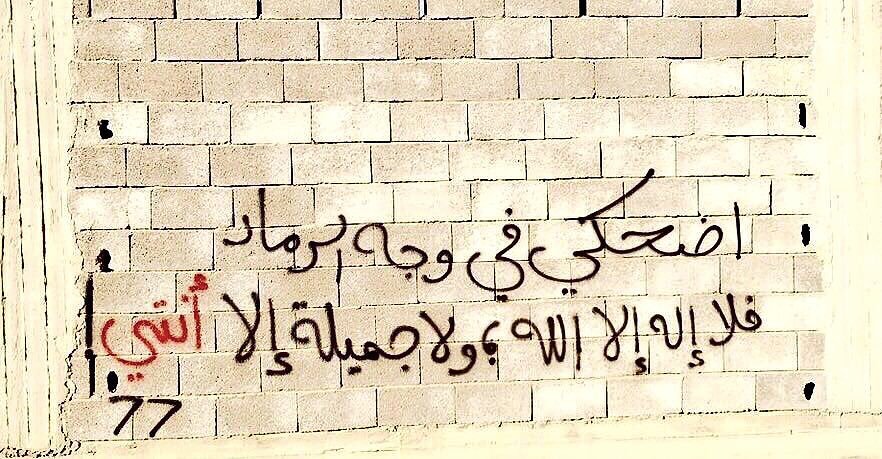 اضحكي في وجه الرماد
فلا إله إلا الله ، ولا جميلة إلا أنتي
77